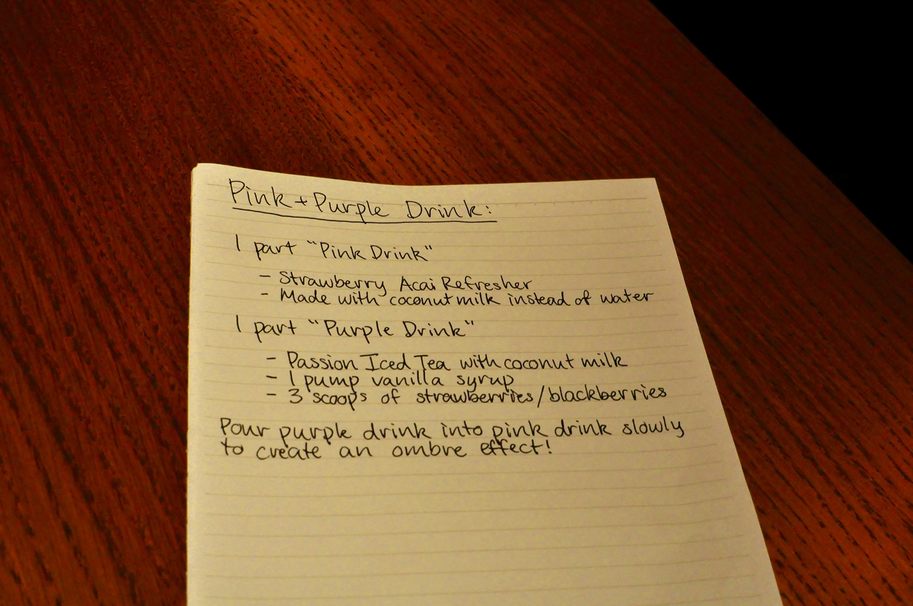 Pink + Purple Drink:
1 part "Pink Drink"
- Strawberry Acai Refresher
- Made with coconut milk instead of water
1 part "Purple Drink"
- Passion Iced Tea with coconut milk
- 1 pump vanilla syrup
- 3 scoops of strawberries/blackberries
Pour purple drink into pink drink slowly
to create an ombre effect!